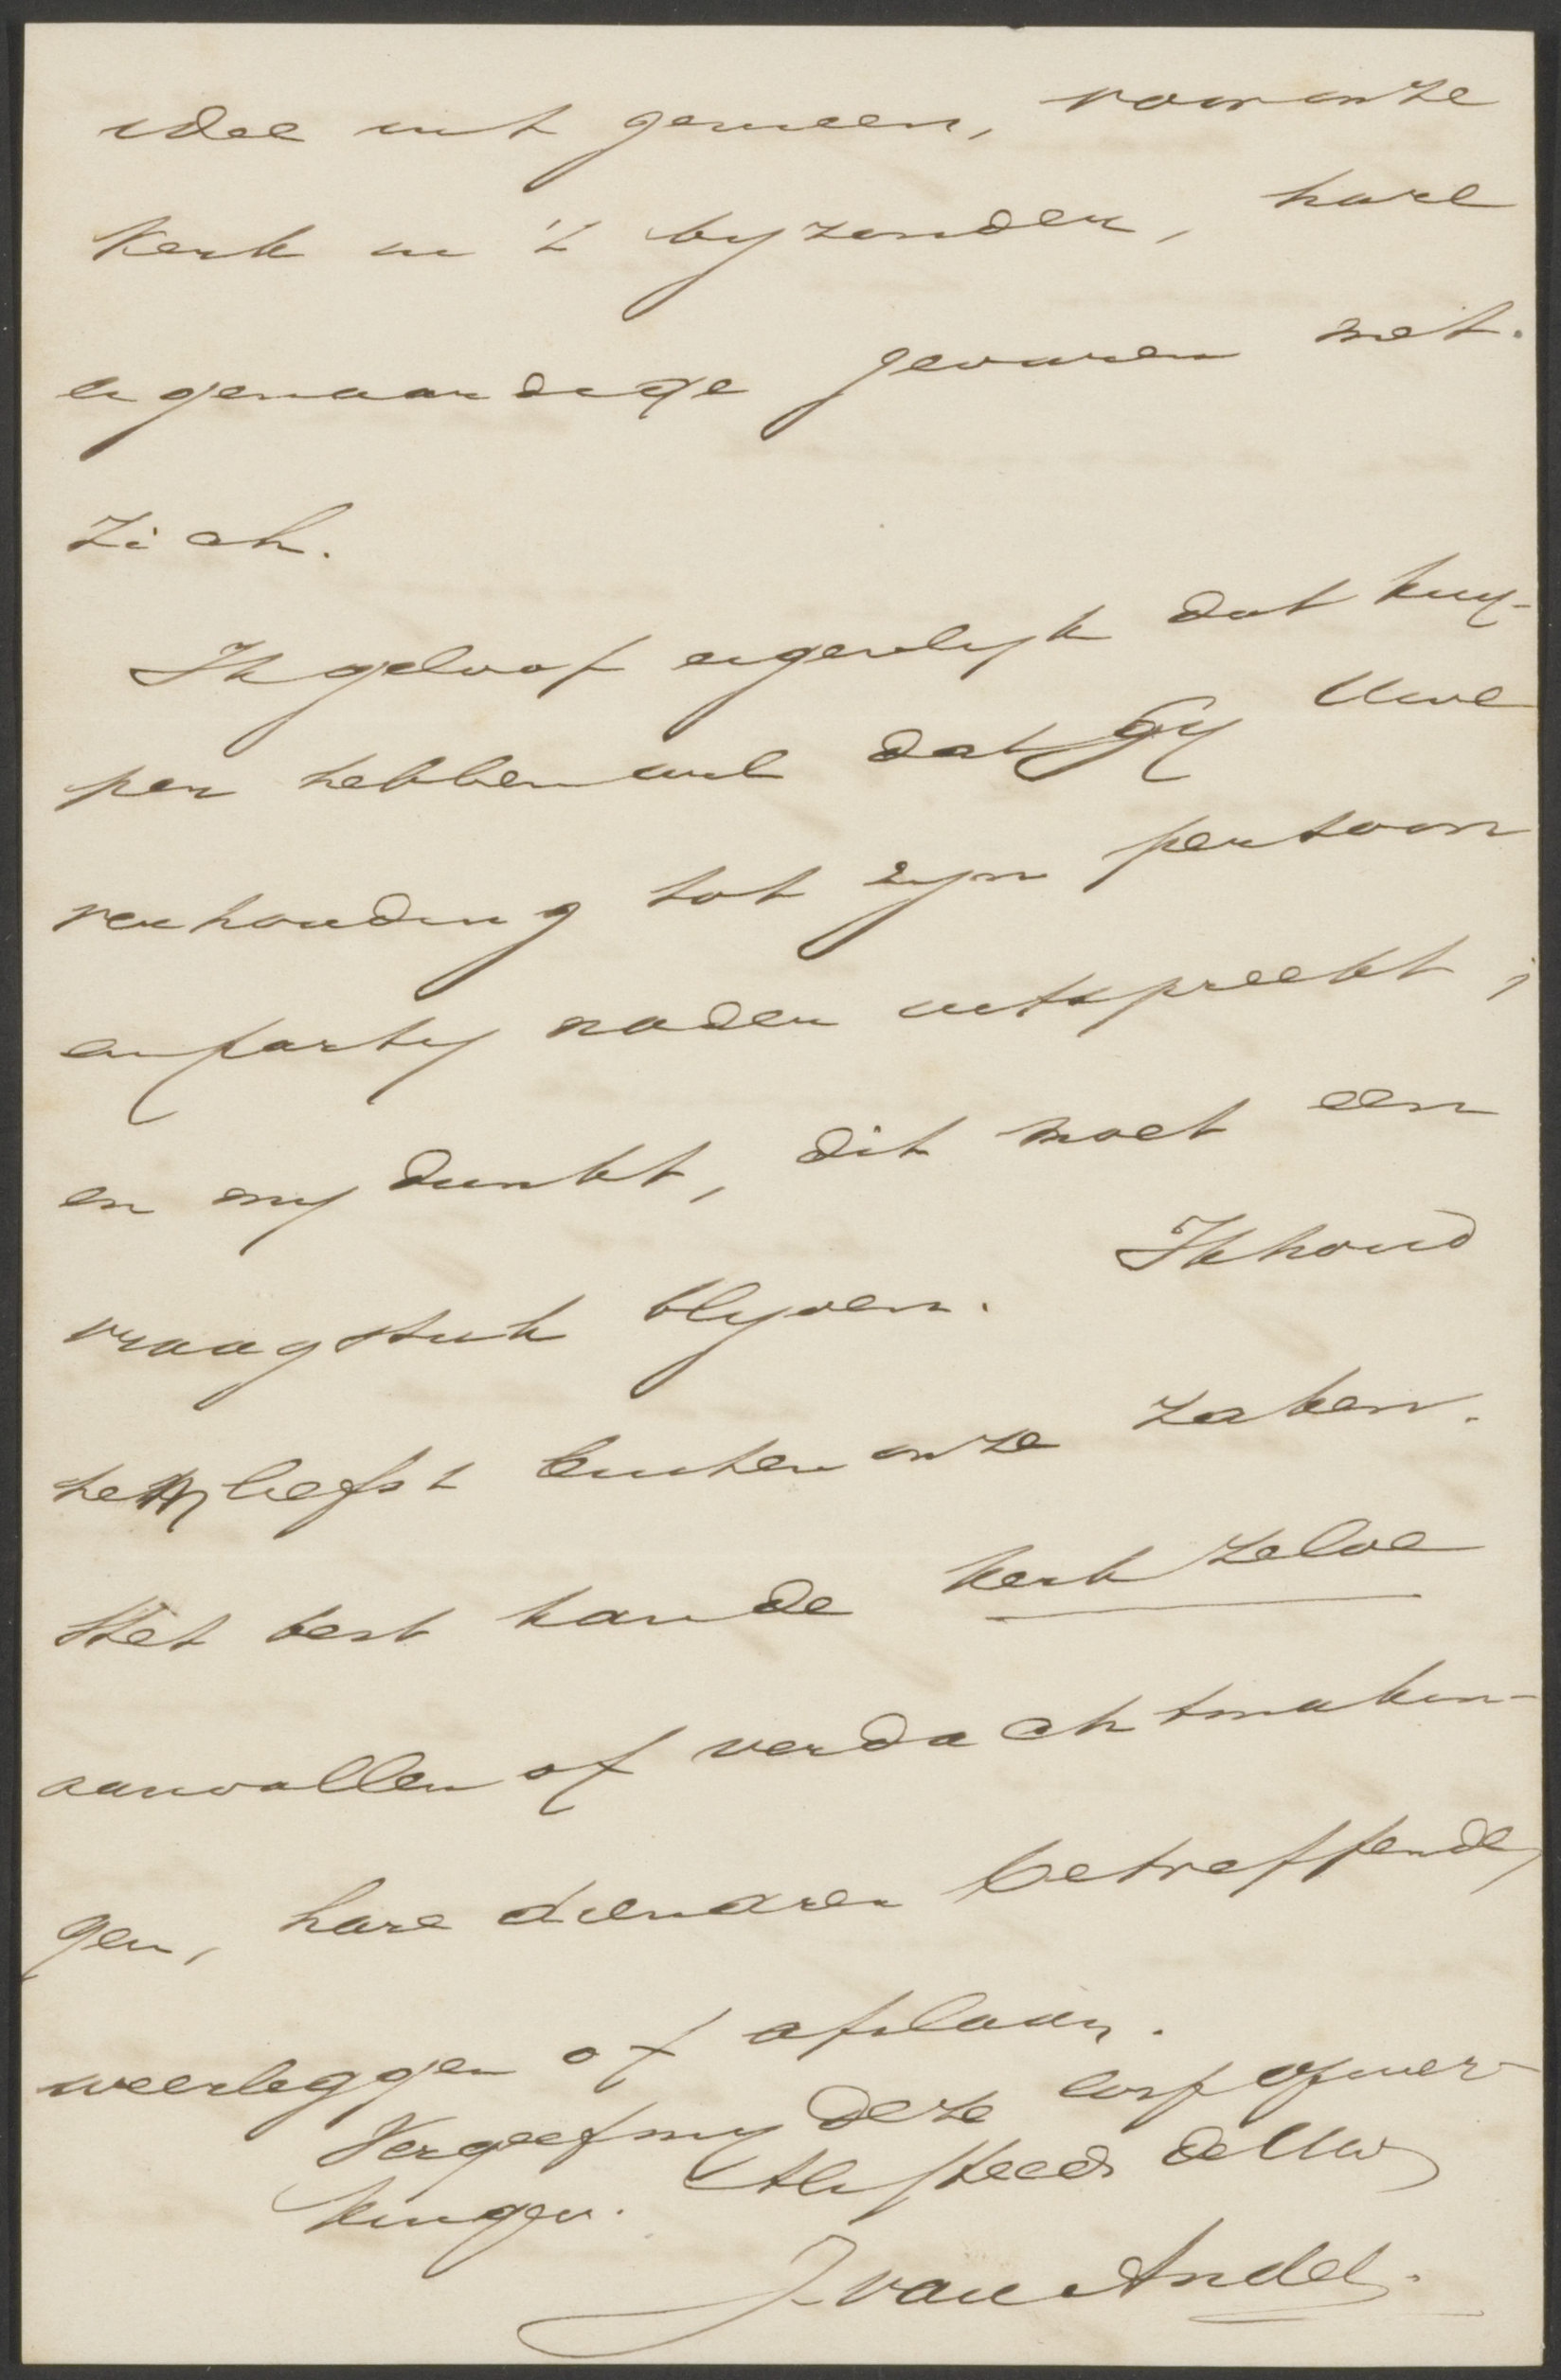 idee uit gemeen, voor onze
Kerk in 't byzonder, hare
eigenaardige gevaren met
zich.
Ik geloof eigenlyk dat Kuy-
per hebben wil dat Gy Uwe
verhouding tot zyn persoon
en party nader uitspreekt;
en my dunkt, dit moet een
vraagstuk blyven. Ik houd
hem liefst buiten onze zaken.
Het best kan de Kerk zelve
aanvallen of verdachtmakin-
gen, hare dienaren betreffende,
weerleggen of afslaan.
Vergeef my deze opmer-
kingen. Als steeds de Uw
J van Andel.